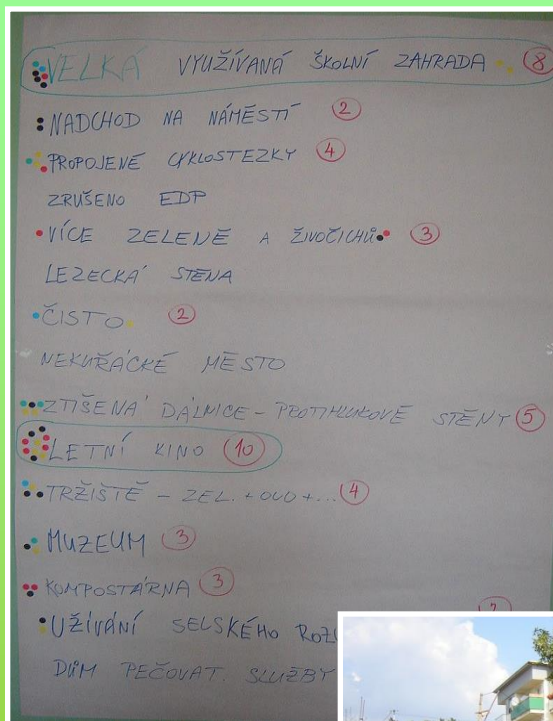 VELKÁ VYUŽÍVANÁ ŠKOLNÍ ZAHRADA 8
NADCHOD NA NÁMĚSTÍ 2
PROPOJENÉ CYKLOSTEZKY 4
ZRUŠENO EDP
VÍCE ZELENĚ A ŽIVOČICHŮ 3
LEZECKÁ STĚNA
ČISTO 2
NEKUŘÁCKÉ MĚSTO
ZTIŠENÁ DÁLNICE - PROTIHLUKOVÉ STĚNY 5
LETNÍ KINO 10
TRŽIŠTĚ - ZEL. + OVO + ... 4
MUZEUM 3
KOMPOSTÁRNA 3
UŽÍVÁNÍ SELSKÉHO
DŮM PEČOVAT SLUŽBY